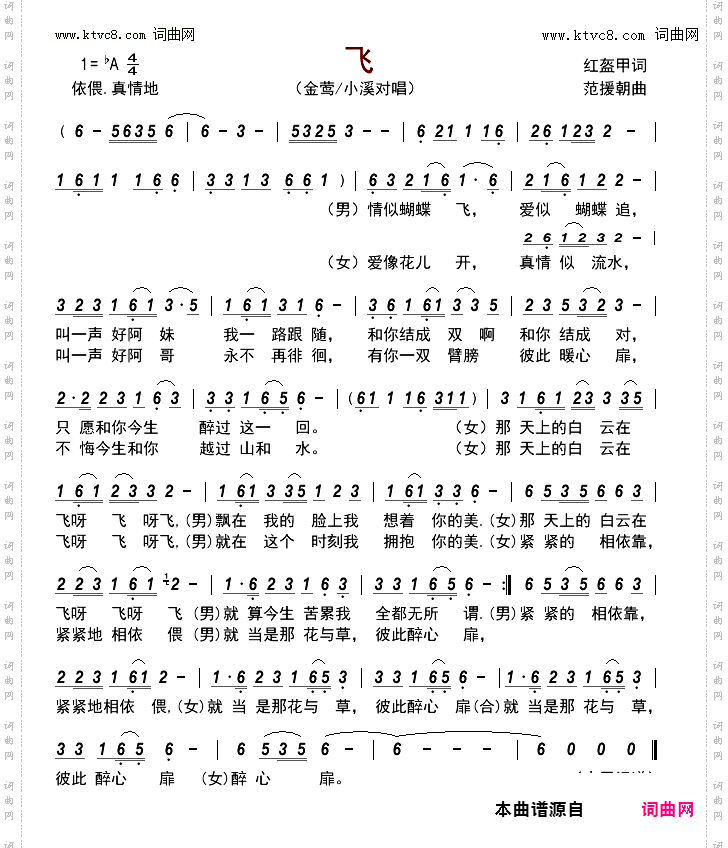 www.ktvc8.com 词曲网 www.ktvc8.com 词曲网
飞
1=♭A 4/4 红盔甲词
依偎.真情地 （金莺/小溪对唱） 范援朝曲
( 6 - 5635 6 | 6 - 3 - | 5325 3 - - | 6 21 1 16 | 26 123 2 - |
1 61 1 1 16 6 | 3 3 1 3 6 6 1 ) | 6 3 2 1 6 1· 6 | 2 1 6 1 2 2 - |
（男）情似蝴蝶 飞， 爱似 蝴蝶 追，
2 6 1 2 3 2 - |
（女）爱像花儿 开， 真情 似 流水，
3 23 1 61 3·5 | 1 61 31 6 - | 36 1 61 3 35 | 2 35 32 3 - |
叫一声 好阿 妹 我一 路跟 随， 和你结成 双 啊 和你 结成 对，
叫一声 好阿 哥 永不 再徘 徊， 有你一双 臂膀 彼此 暖心 扉，
2·2 2 3 1 6 3 | 3 3 1 6 5 6 - | (61 1 16 311) | 3 1 6 1 23 3 35 |
只 愿和你今生 醉过 这一 回。 （女）那 天上的白 云在
不 悔今生和你 越过 山和 水。 （女）那 天上的白 云在
1 61 23 3 2 - | 1 61 3 35 1 2 3 | 1 61 3 3 6 - | 6 5 35 6 6 3 |
飞呀 飞 呀飞,(男)飘在 我的 脸上我 想着 你的美.(女)那 天上的 白云在
飞呀 飞 呀飞,(男)就在 这个 时刻我 拥抱 你的美.(女)紧 紧的 相依靠，
2 23 1 61 2 - | 1·6 2 3 1 6 3 | 3 3 1 6 5 6 - :| 6 5 35 6 6 3 |
飞呀 飞呀 飞 (男)就 算今生 苦累我 全都无所 谓.(男)紧 紧的 相依靠，
紧紧地 相依 偎 (男)就 当是那 花与草，彼此醉心 扉，
2 2 3 1 61 2 - | 1·6 2 3 1 6 5 3 | 3 3 1 6 5 6 - | 1·6 2 3 1 6 5 3 |
紧紧地相依 偎,(女)就 当 是那花与 草，彼此醉心 扉(合)就 当是那 花与 草，
3 3 1 6 5 6 - | 6 5 35 6 - | 6 - - - | 6 0 0 0 ‖
彼此 醉心 扉 (女)醉 心 扉。
本曲谱源自 词曲网